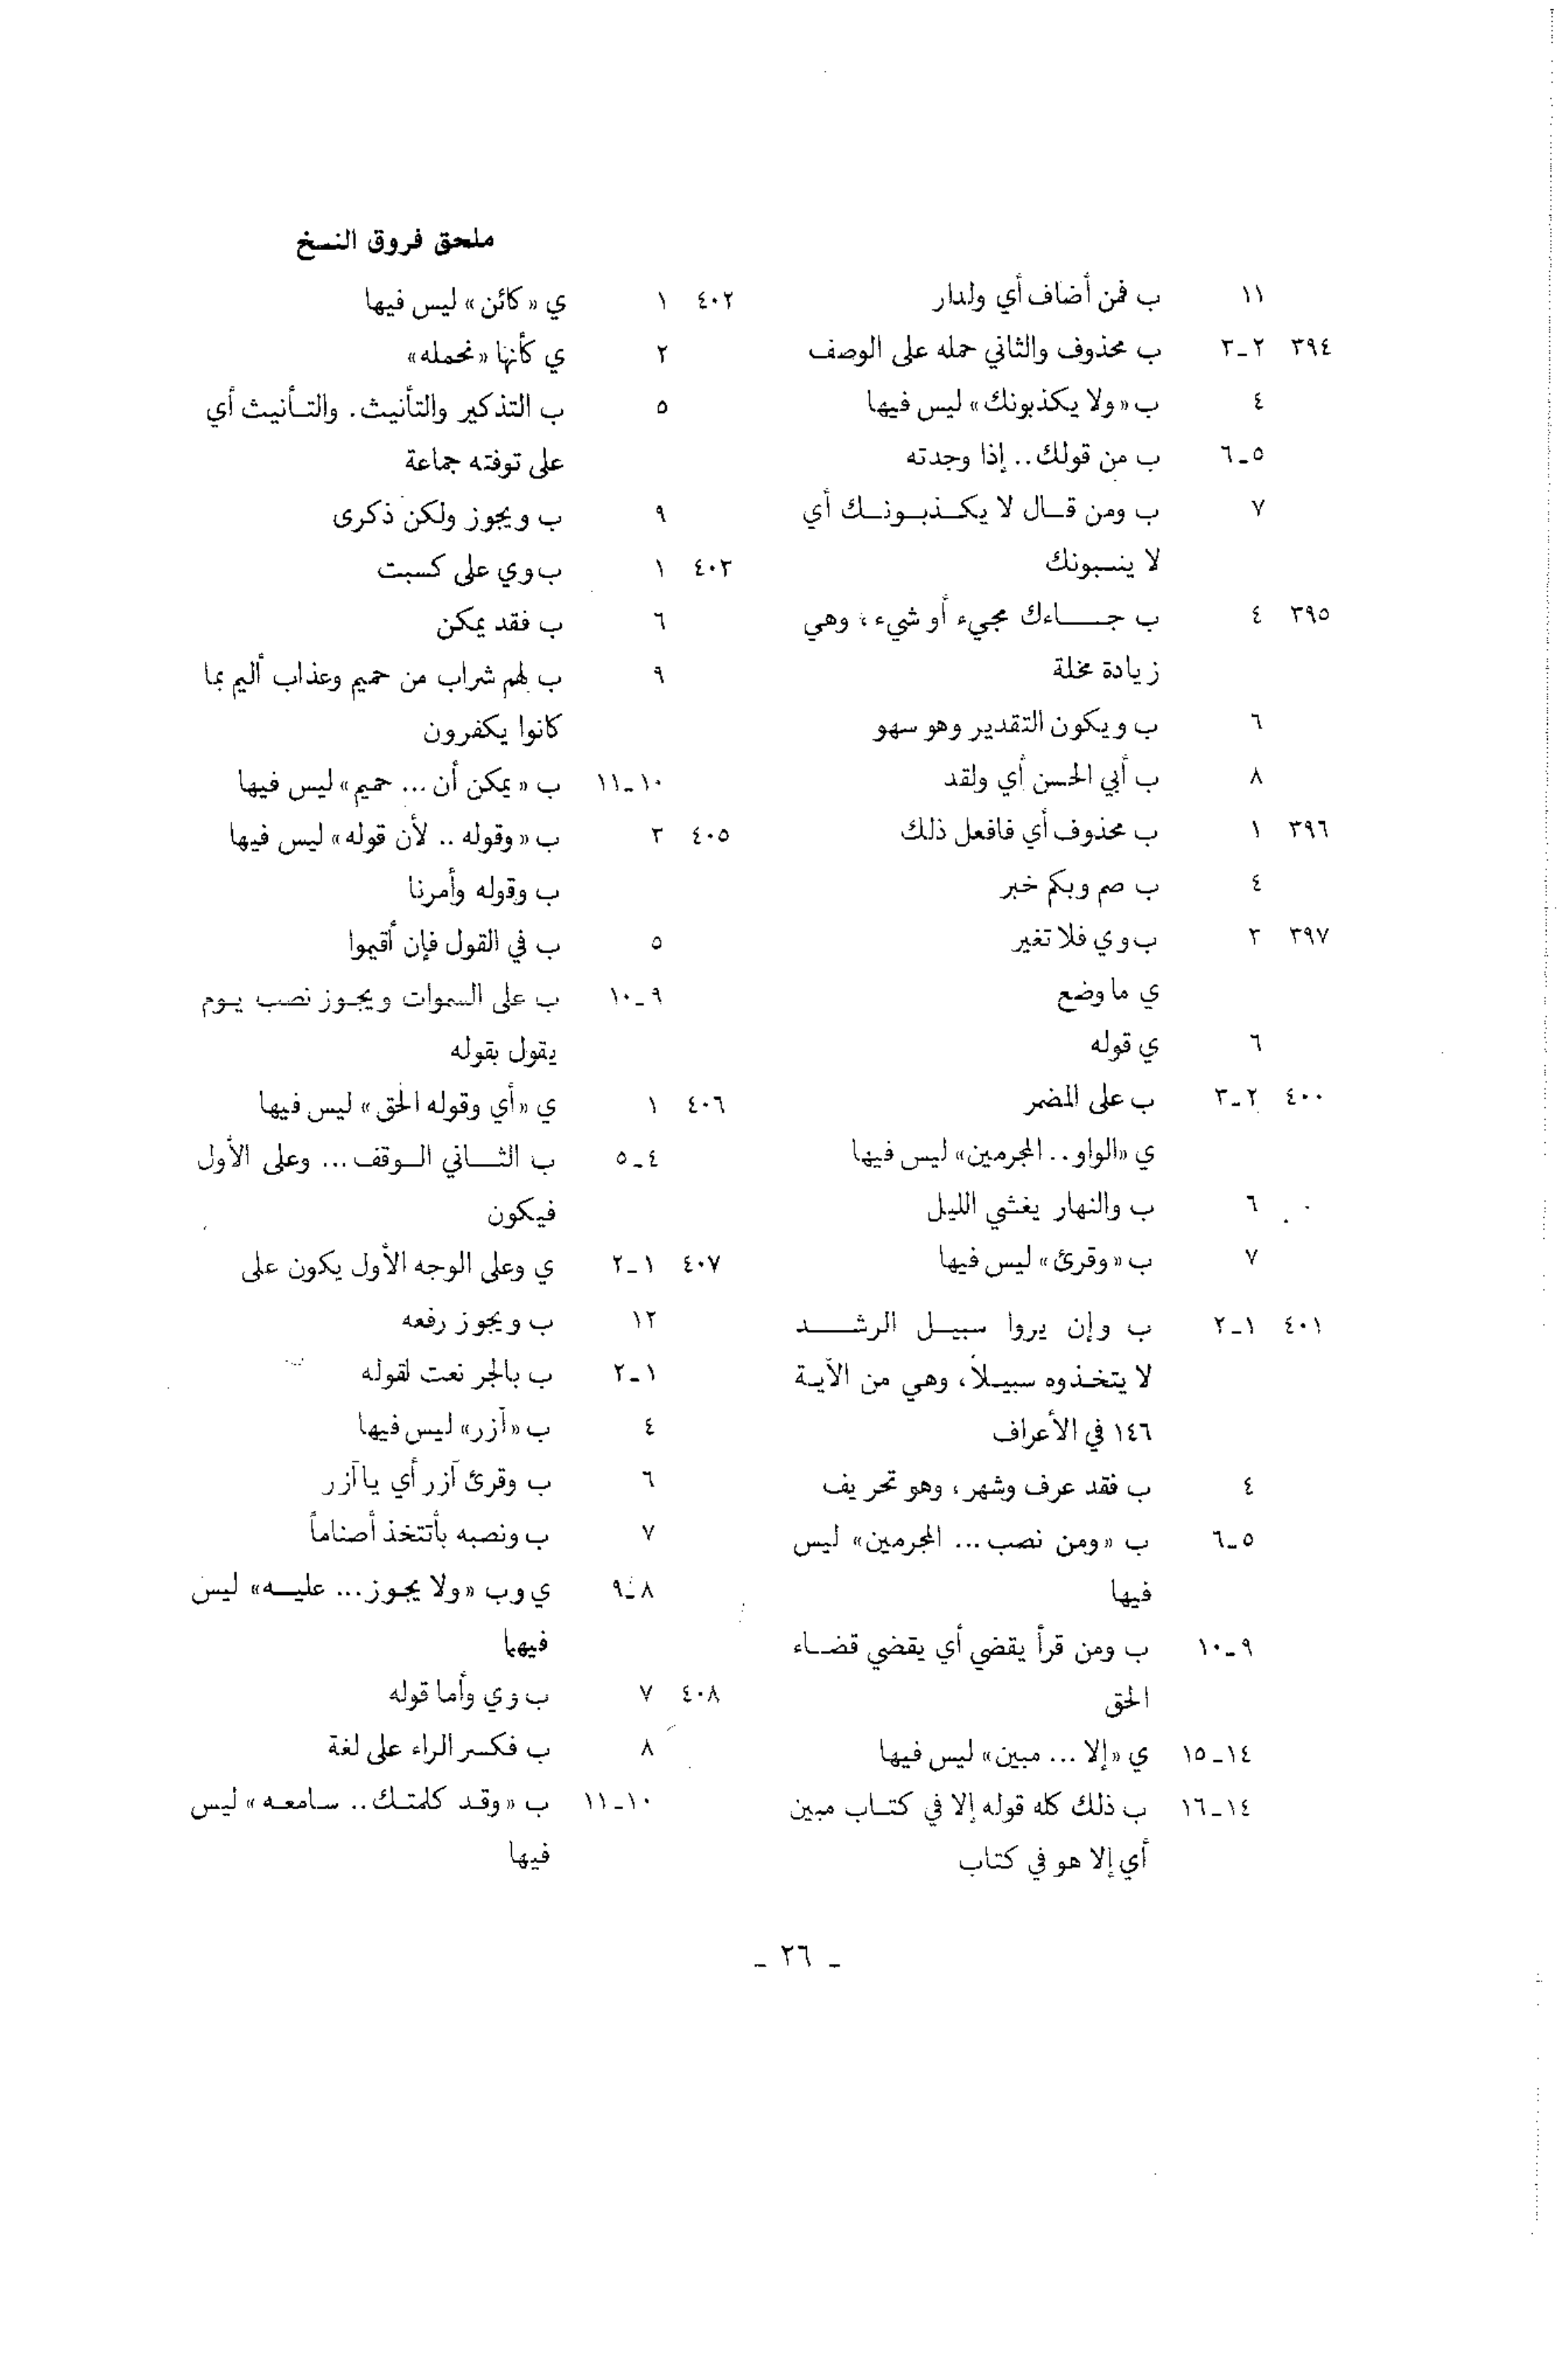 ملحق فروق النسخ
١١ ب فمن أضاف أي ولدار
٣٩٤ ٢-٣ ب محذوف والثاني حمله على الوصف
٤ ب «ولا يكذبونك» ليس فيها
٥-٦ ب من قولك.. إذا وجدته
٧ ب ومن قال لا يكذبونك أي
لا ينسبونك
٣٩٥ ٤ ب جاءك مجيء أو شيء، وهي
زيادة مخلة
٦ ب ويكون التقدير وهو سهو
٨ ب أبي الحسن أي ولقد
٣٩٦ ١ ب محذوف أي فافعل ذلك
٤ ب صم وبكم خبر
٣٩٧ ٣ ب وي فلا تغير
ي ما وضع
٦ ي قوله
٤٠٠ ٢-٣ ب على المضمر
ي «الواو.. المجرمين» ليس فيها
٦ ب والنهار يغشي الليل
٧ ب «وقرئ» ليس فيها
٤٠١ ١-٢ ب وإن يروا سبيل الرشد
لا يتخذوه سبيلاً، وهي من الآية
١٤٦ في الأعراف
٤ ب فقد عرف وشهر، وهو تحريف
٥-٦ ب «ومن نصب ... المجرمين» ليس
فيها
٩-١٠ ب ومن قرأ يقضي أي يقضي قضاء
الحق
١٤-١٥ ي «إلا ... مبين» ليس فيها
١٤-١٦ ب ذلك كله قوله إلا في كتاب مبين
أي إلا هو في كتاب
٤٠٢ ١ ي «كائن» ليس فيها
٢ ي كأنها «نحمله»
٥ ب التذكير والتأنيث. والتأنيث أي
على توفته جماعة
٩ ب ويجوز ولكن ذكرى
٤٠٣ ١ ب وي على كسبت
٦ ب فقد يمكن
٩ ب لهم شراب من حميم وعذاب أليم بما
كانوا يكفرون
١٠-١١ ب «يمكن أن ... حميم» ليس فيها
٤٠٥ ٣ ب «وقوله .. لأن قوله» ليس فيها
ب وقوله وأمرنا
٥ ب في القول فإن أقيموا
٩-١٠ ب على السموات ويجوز نصب يوم
يقول بقوله
٤٠٦ ١ ي «أي وقوله الحق» ليس فيها
٤-٥ ب الثاني الوقف ... وعلى الأول
فيكون
٤٠٧ ١-٢ ي وعلى الوجه الأول يكون على
١٢ ب ويجوز رفعه
١-٢ ب بالجر نعت لقوله
٤ ب «آزر» ليس فيها
٦ ب وقرئ آزر أي يا آزر
٧ ب ونصبه بأتتخذ أصناماً
٨-٩ ي وب «ولا يجوز ... عليه» ليس
فيها
٤٠٨ ٧ ب وي وأما قوله
٨ ب فكسر الراء على لغة
١٠-١١ ب «وقد كلمتك.. سامعه» ليس
فيها
- ٢٦ -